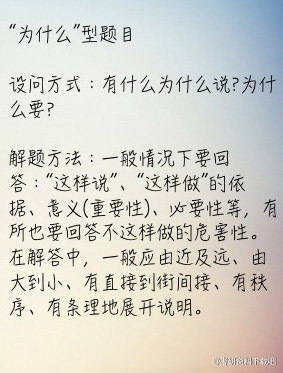 “为什么”型题目
设问方式：有什么为什么说?为什
么要?
解题方法：一般情况下要回
答：“这样说”、“这样做”的依
据、意义(重要性)、必要性等，有
所也要回答不这样做的危害性。
在解答中，一般应由近及远、由
大到小、有直接到街间接、有秩
序、有条理地展开说明。